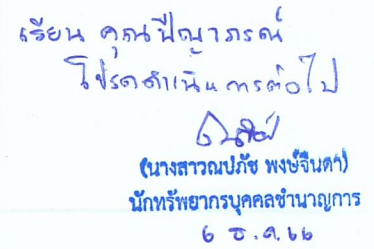 เรียน คุณปีณาภรณ์
โปรดดำเนินการต่อไป
(นางสาวณปภัช พงษ์จินดา)
นักทรัพยากรบุคคลชำนาญการ
6 ธ.ค. 66